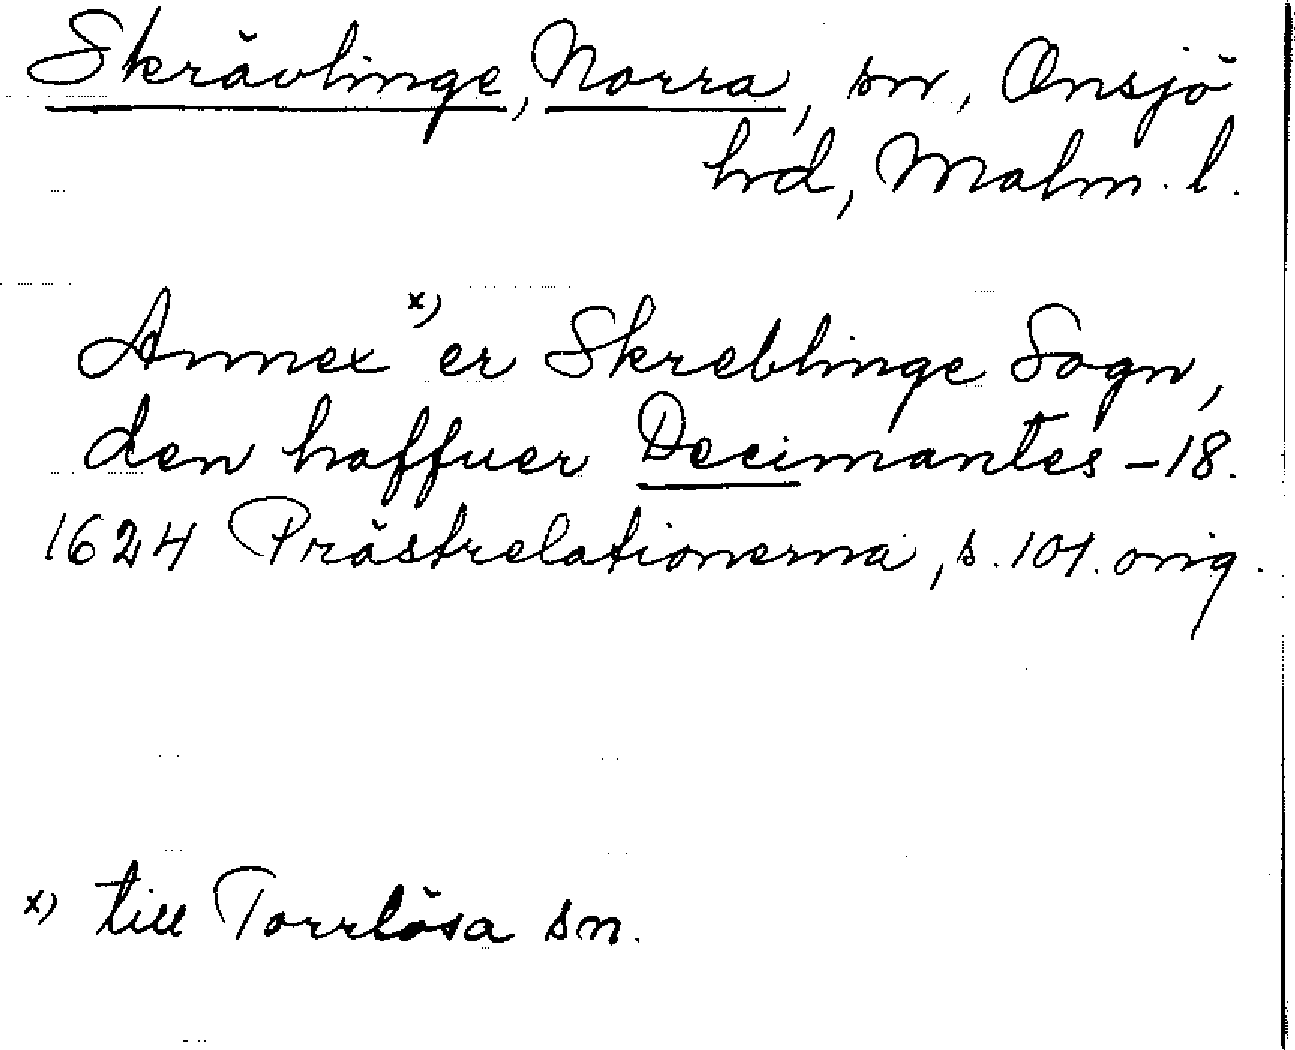 Skrävlinge, Norra, sn, Onsjö
hrd, Malm. l.
Annex x) er Skreblinge Sogn,
den haffuer Decimantes - 18.
1624 Prästrelationerna, s. 101. orig.
x) till Torrlösa sn.